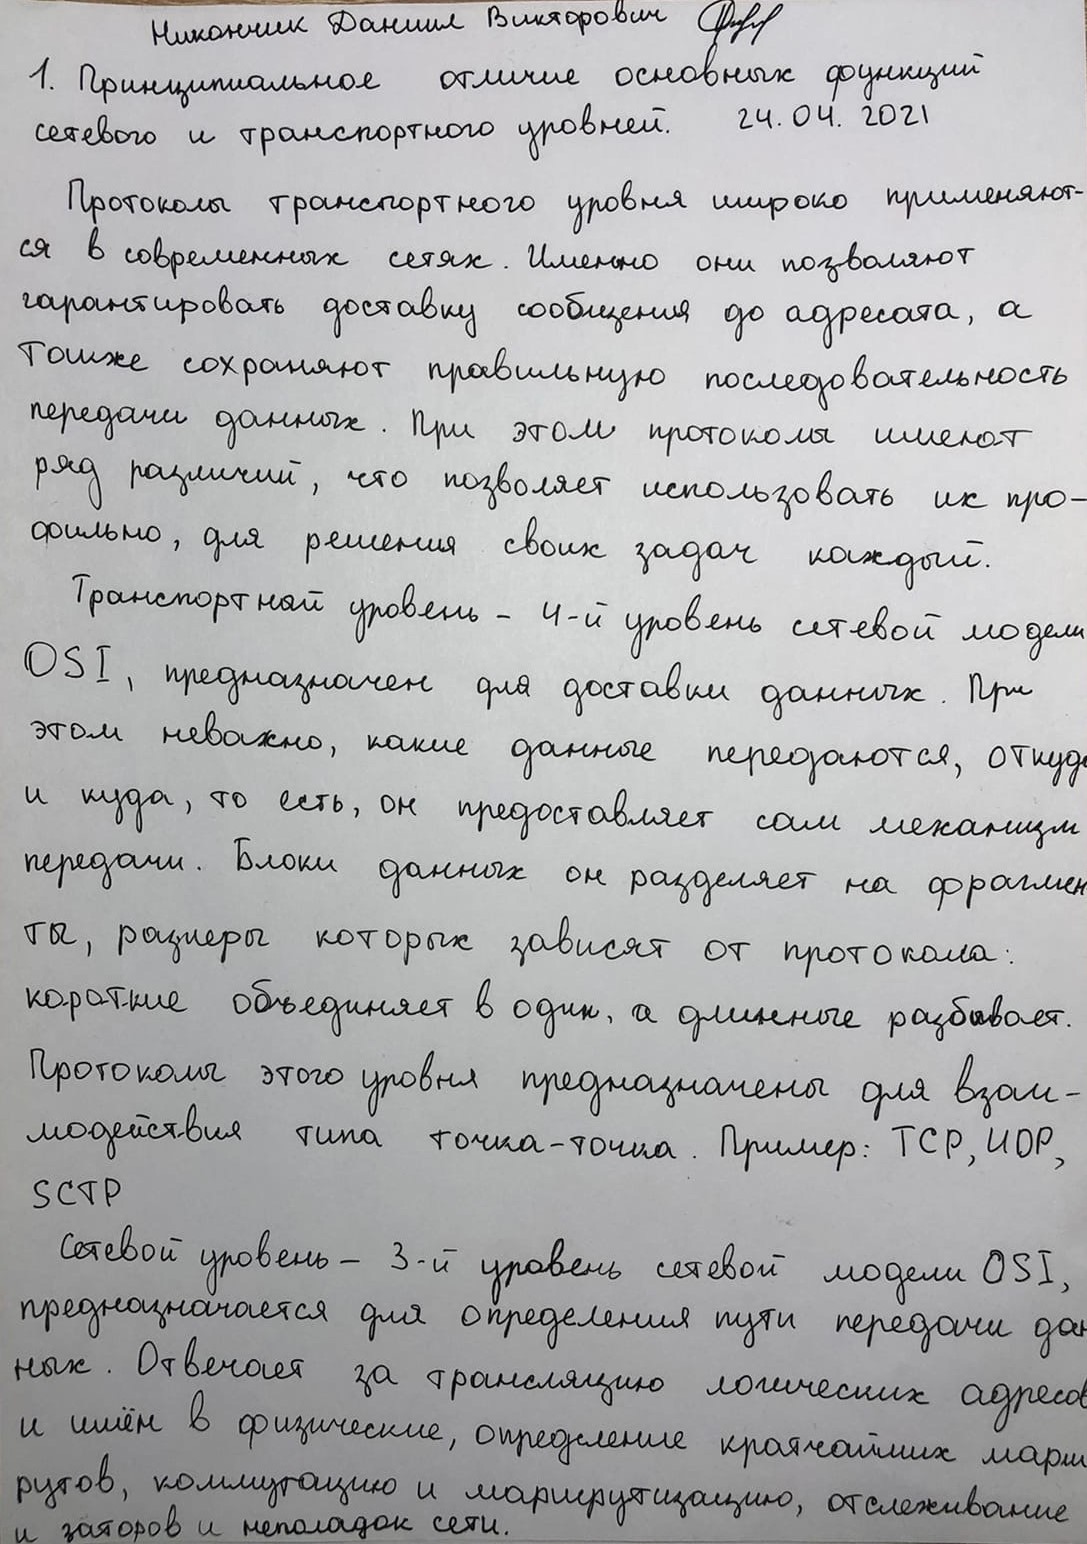 Никончик Даниил Викторович
1. Принципиальное отличие основных функций
сетевого и транспортного уровней. 24.04.2021
Протоколы транспортного уровня широко применяют-
ся в современных сетях. Именно они позволяют
гарантировать доставку сообщения до адресата, а
также сохраняют правильную последовательность
передачи данных. При этом протоколы имеют
ряд различий, что позволяет использовать их про-
фильно, для решения своих задач каждый.
Транспортный уровень – 4-й уровень сетевой модели
OSI, предназначен для доставки данных. При
этом неважно, какие данные передаются, откуда
и куда, то есть, он предоставляет сам механизм
передачи. Блоки данных он разделяет на фрагмен
ты, размеры которых зависят от протокола:
короткие объединяет в один, а длинные разбивает.
Протоколы этого уровня предназначены для взаи-
модействия типа точка-точка. Пример: TCP, UDP,
SCTP
Сетевой уровень – 3-й уровень сетевой модели OSI,
предназначается для определения пути передачи дан
ных. Отвечает за трансляцию логических адресов
и имён в физические, определение кратчайших марш
рутов, коммутацию и маршрутизацию, отслеживание
и заторов и неполадок сети.